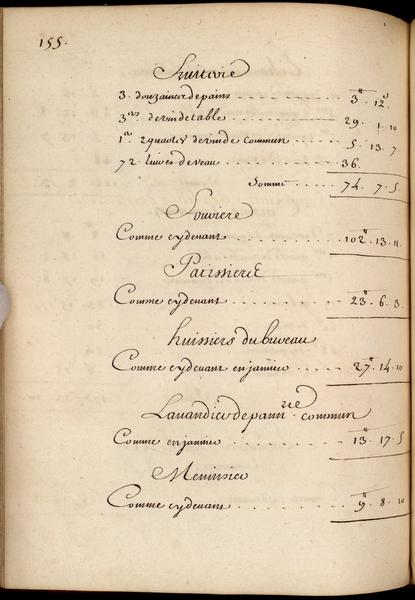 155.
Fruiterie
3. douzaines de pains 3ᵗᵗ 12ˢ
3ᵃˢ de vin de table 29. 1. 10
1ᵃ 2 quartes de vin de commun 5. 13. 7.
72. livres de veau 36.
Somme 74. 7. 5
Comme cy devant 102ᵗᵗ. 13. 11.
Patissier
Comme cy devant 23ᵗᵗ. 6. 3.
huissiers du bureau
Comme cy devant en janvier 27ᵗᵗ. 14. 10
Lavandier de pann.ʳⁱᵉ commun
Comme en janvier 13ᵗᵗ. 17. 5
Menuisier
Comme cy devant 9ᵗᵗ. 8. 10